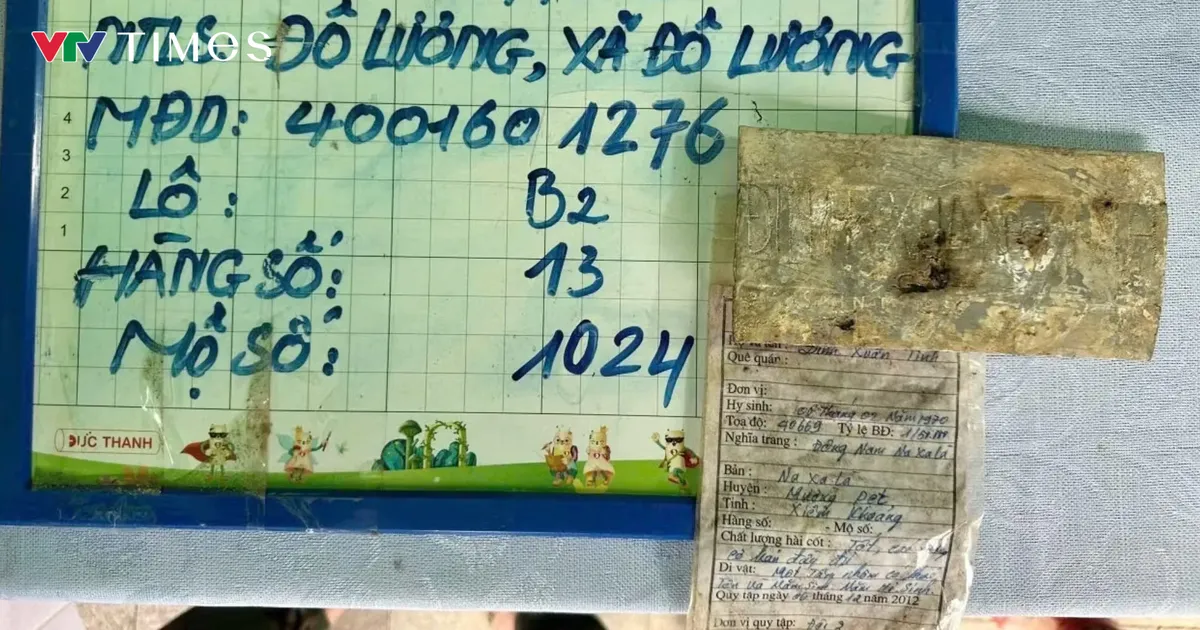 VTV TIMES
NTLS ĐÔ LƯƠNG, XÃ ĐÔ LƯƠNG
MĐD: 400160 1276
LÔ : B2
HÀNG SỐ: 13
MỘ SỐ: 1024
4
3
2
1
ĐỨC THANH
ĐINH
Đinh Xuân Tình
Quê quán :
Đơn vị:
Hy sinh: tháng 02 Năm 1970
Toạ độ: 40669 Tỷ lệ BĐ:
Nghĩa trang : Đông Nam Na Xala
Bản : Na Xala
Huyện : Mường pẹt
Tỉnh : Xiêm Khoảng
Hàng số: - Mộ số:
Chất lượng hài cốt : Tốt,
Di vật: Một Tấm nhôm
tên và Năm sinh Năm Hi Sinh
Quy tập ngày tháng 12 năm 2012
Đơn vị quy tập: Đội 2